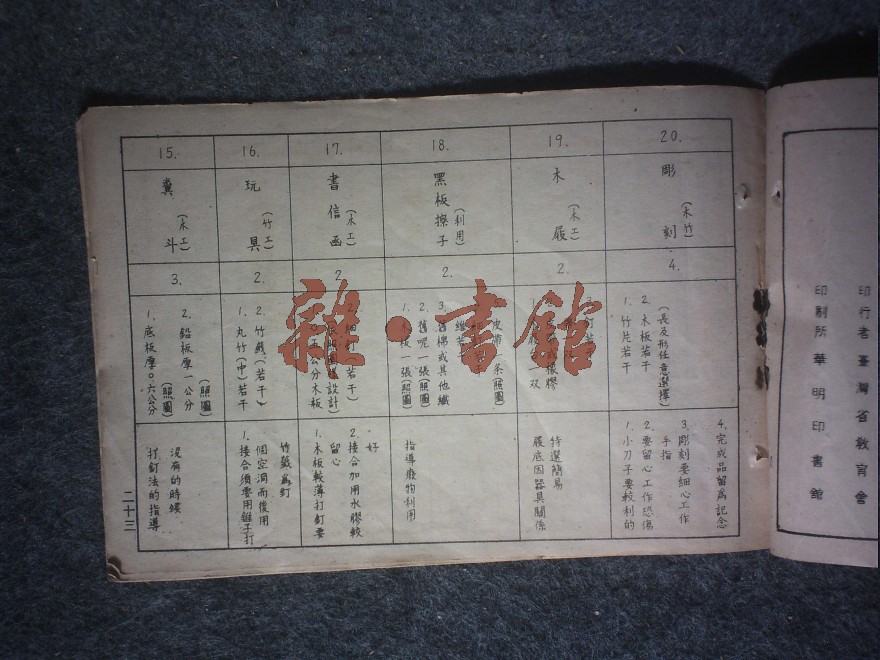 20.
彫刻
(木竹)
4.
1. 竹片若干
2. 木板若干
(長及形任意選擇)
1. 小刀子要較利的
2. 要留心工作恐傷
手指
3. 彫刻要細心工作
4. 完成品留為記念
19.
木屐
(木工)
2.
皮帶一条(照圖)
特選簡易
屐底因器具關係
18.
黑板擦子
(利用)
2.
2. 舊呢一張(照圖)
3. 舊棉或其他纖
指導廢物利用
17.
書信函
(木工)
2
1. 木板較薄打釘要
留心
2. 接合加用水膠較
好
16.
玩具
(竹工)
2.
1. 丸竹(中)若干
2. 竹籤(若干)
1. 接合須要用錐子打
個空洞而復用
竹籤為釘
15.
糞斗
(木工)
3.
1. 底板厚〇六公分
(照圖)
2. 鉛板厚一公分
(照圖)
打釘法的指導
沒有的時候
二十三
印行者臺灣省教育會
印刷所華明印書館
雜·書館